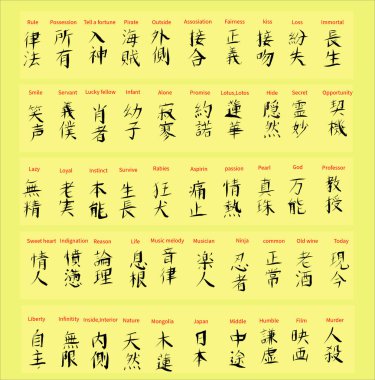 Rule Possession Tell a fortune Pirate Outside Assosiation Fairness kiss Loss Immortal
律法 所有 入神 海賊 外側 接合 正義 接吻 紛失 長生
Smile Servant Lucky fellow Infant Alone Promise Lotus,Lotos Hide Secret Opportunity
笑声 義僕 肖者 幼子 寂寥 約諾 蓮華 隠然 霊妙 契機
Lazy Loyal Instinct Survive Rabies Aspirin passion Pearl God Professor
無精 老実 本能 生長 狂犬 痛止 情熱 真珠 万能 教授
Sweet heart Indignation Reason Life Music melody Musician Ninja common Old wine Today
情人 憤懣 論理 息根 音律 楽人 忍者 正常 老酒 現今
Liberty Infinitity Inside,Interior Nature Mongolia Japan Middle Humble Film Murder
自主 無限 内側 天然 木蓮 日本 中途 謙虚 映画 人殺